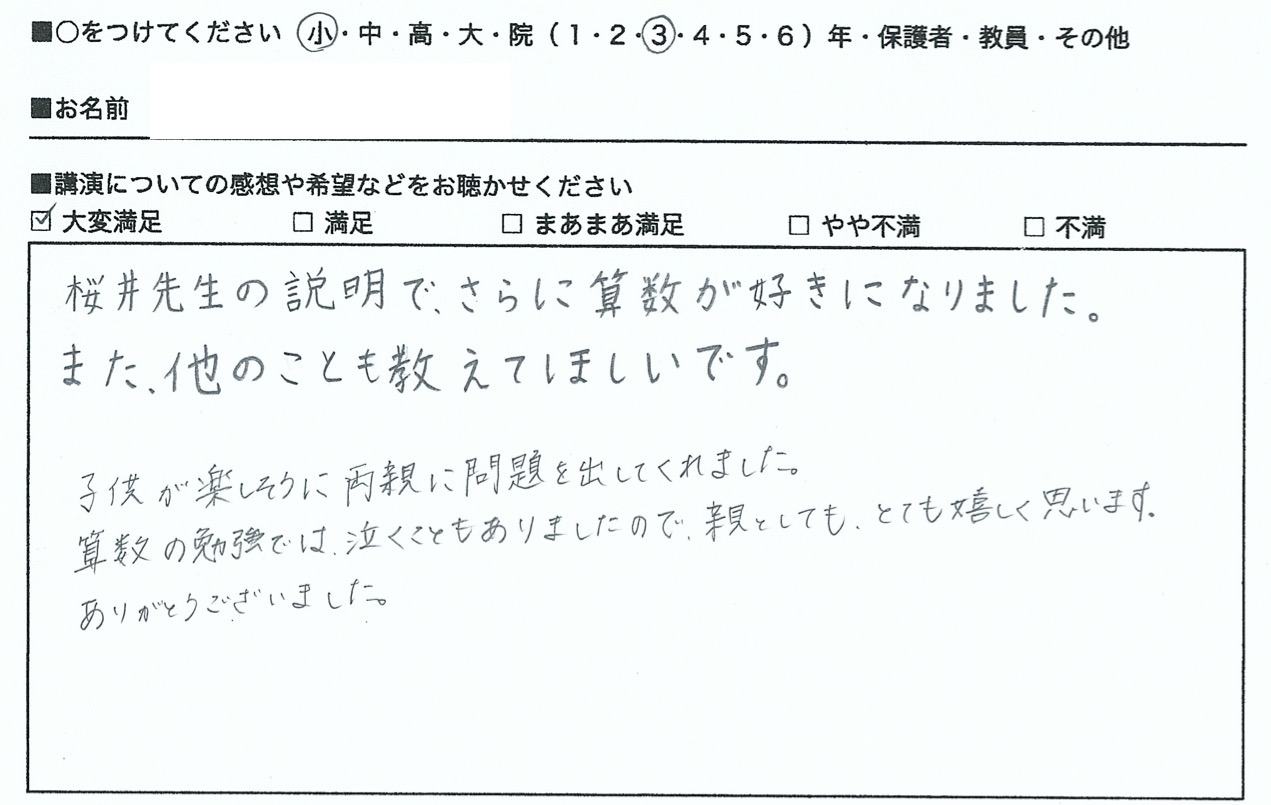 ■○をつけてください 小・中・高・大・院（1・2・3・4・5・6）年・保護者・教員・その他
■お名前
■講演についての感想や希望などをお聴かせください
☑ 大変満足 □ 満足 □ まあまあ満足 □ やや不満 □ 不満
桜井先生の説明で、さらに算数が好きになりました。
また、他のことも教えてほしいです。
子供が楽しそうに両親に問題を出してくれました。
算数の勉強では、泣くこともありましたので、親としても、とても嬉しく思います。
ありがとうございました。